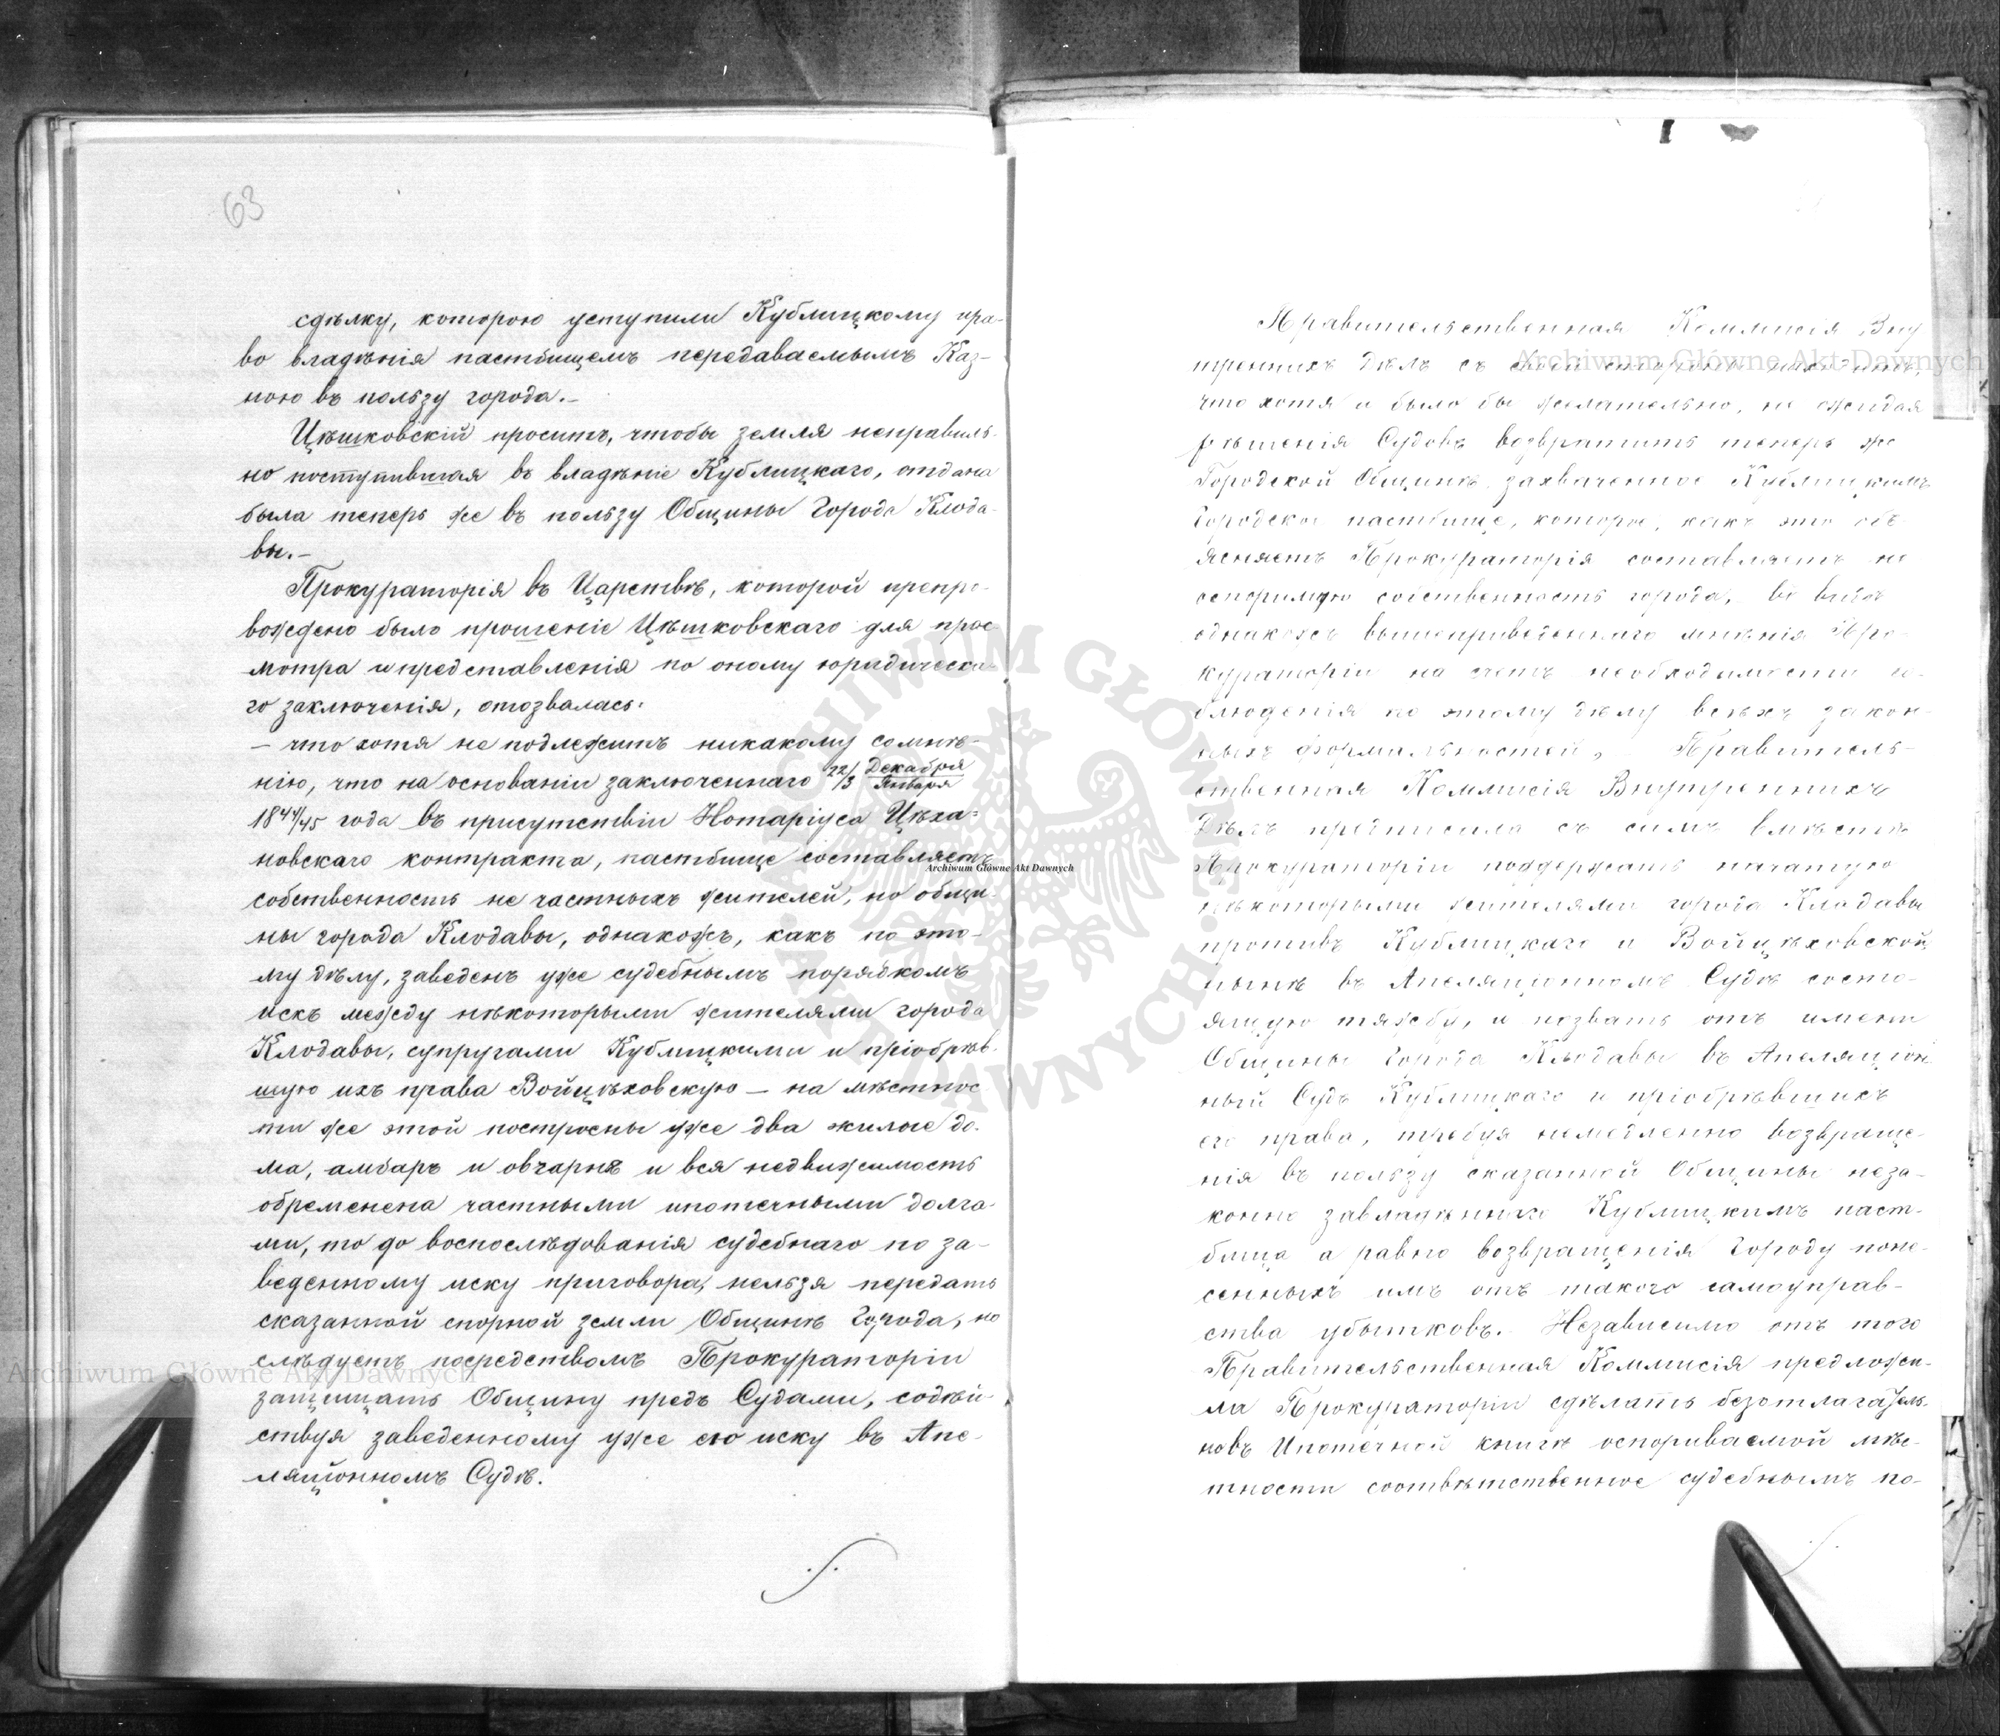 63
сдѣлку, которою уступили Кублицкому пра-
во владѣнія пастбищемъ передаваемымъ Каз-
ною въ пользу города.-
Цѣшковскій проситъ, чтобы земля неправиль-
но поступившая въ владѣніе Кублицкаго, отдана
была теперь же въ пользу Общины Города Клода-
вы.-
Прокураторія въ Царствѣ, которой препро-
вождено было прошеніе Цѣшковскаго для прос-
мотра и представленія по оному юридическа-
го заключенія, отозвалась:
— что хотя не подлежитъ никакому сомнѣ-
нію, что на основаніи заключеннаго 22/3 Декабря/Января
1844/45 года въ присутствіи Нотаріуса Цѣха-
новскаго контракта, пастбище составляетъ
собственность не частныхъ жителей, но общи-
ны города Клодавы, однакожъ, какъ по это-
му дѣлу, заведенъ уже судебнымъ порядкомъ
искъ между нѣкоторыми жителями города
Клодавы, супругами Кублицкими и пріобрѣв-
шую ихъ права Войцѣховскую — на мѣстнос
ти же этой построены уже два жилые до-
ма, амбаръ и овчарня и вся недвижимость
обременена частными ипотечными долга-
ми, то до воспослѣдованія судебнаго по за-
веденному иску приговора, нельзя передать
сказанной спорной земли Общинѣ Города, но
слѣдуетъ посредствомъ Прокураторіи
защищать Общину предъ Судами, содѣй-
ствуя заведенному уже ею иску въ Апе-
ляціонномъ Судѣ.
Правительственная Коммисія Вну
треннихъ Дѣлъ съ своей стороны
что хотя и было бы желательно, не ожидая
рѣшенія Судовъ возвратить теперь же
Городской Общинѣ захваченное Кублицкимъ
городское пастбище, которое, какъ это объ-
ясняетъ Прокураторія составляетъ не
оспоримую собственность города, въ виду
однакожъ вышеприведеннаго мнѣнія Про-
кураторіи на счетъ необходимости со-
блюденія по этому дѣлу всѣхъ закон-
ныхъ формальностей, Правитель-
ственная Коммисія Внутреннихъ
Дѣлъ предписала съ симъ вмѣстѣ
Прокураторіи поддержать начатую
нѣкоторыми жителями города Клодавы
противъ Кублицкаго и Войцѣховской
нынѣ въ Апеляціонномъ Судѣ состо-
ящую тяжбу, и позвать отъ имени
Общины Города Клодавы въ Апеляціон
ный Судъ Кублицкаго и пріобрѣвшихъ
его права, требуя немедленно возвраще-
нія въ пользу сказанной Общины неза-
конно завладѣннаго Кублицкимъ паст-
бища а равно возвращенія Городу поне-
сенныхъ имъ отъ такого самоуправ-
ства убытковъ. Независимо отъ того
Правительственная Коммисія предложи-
ла Прокураторіи сдѣлать безотлагатель-
новъ Ипотечной книгѣ оспориваемой мѣс-
тности соотвѣтственное судебнымъ по-
Archiwum Główne Akt Dawnych
Archiwum Główne Akt Dawnych
Archiwum Główne Akt Dawnych
ARCHIWUM GŁÓWNE AKT DAWNYCH